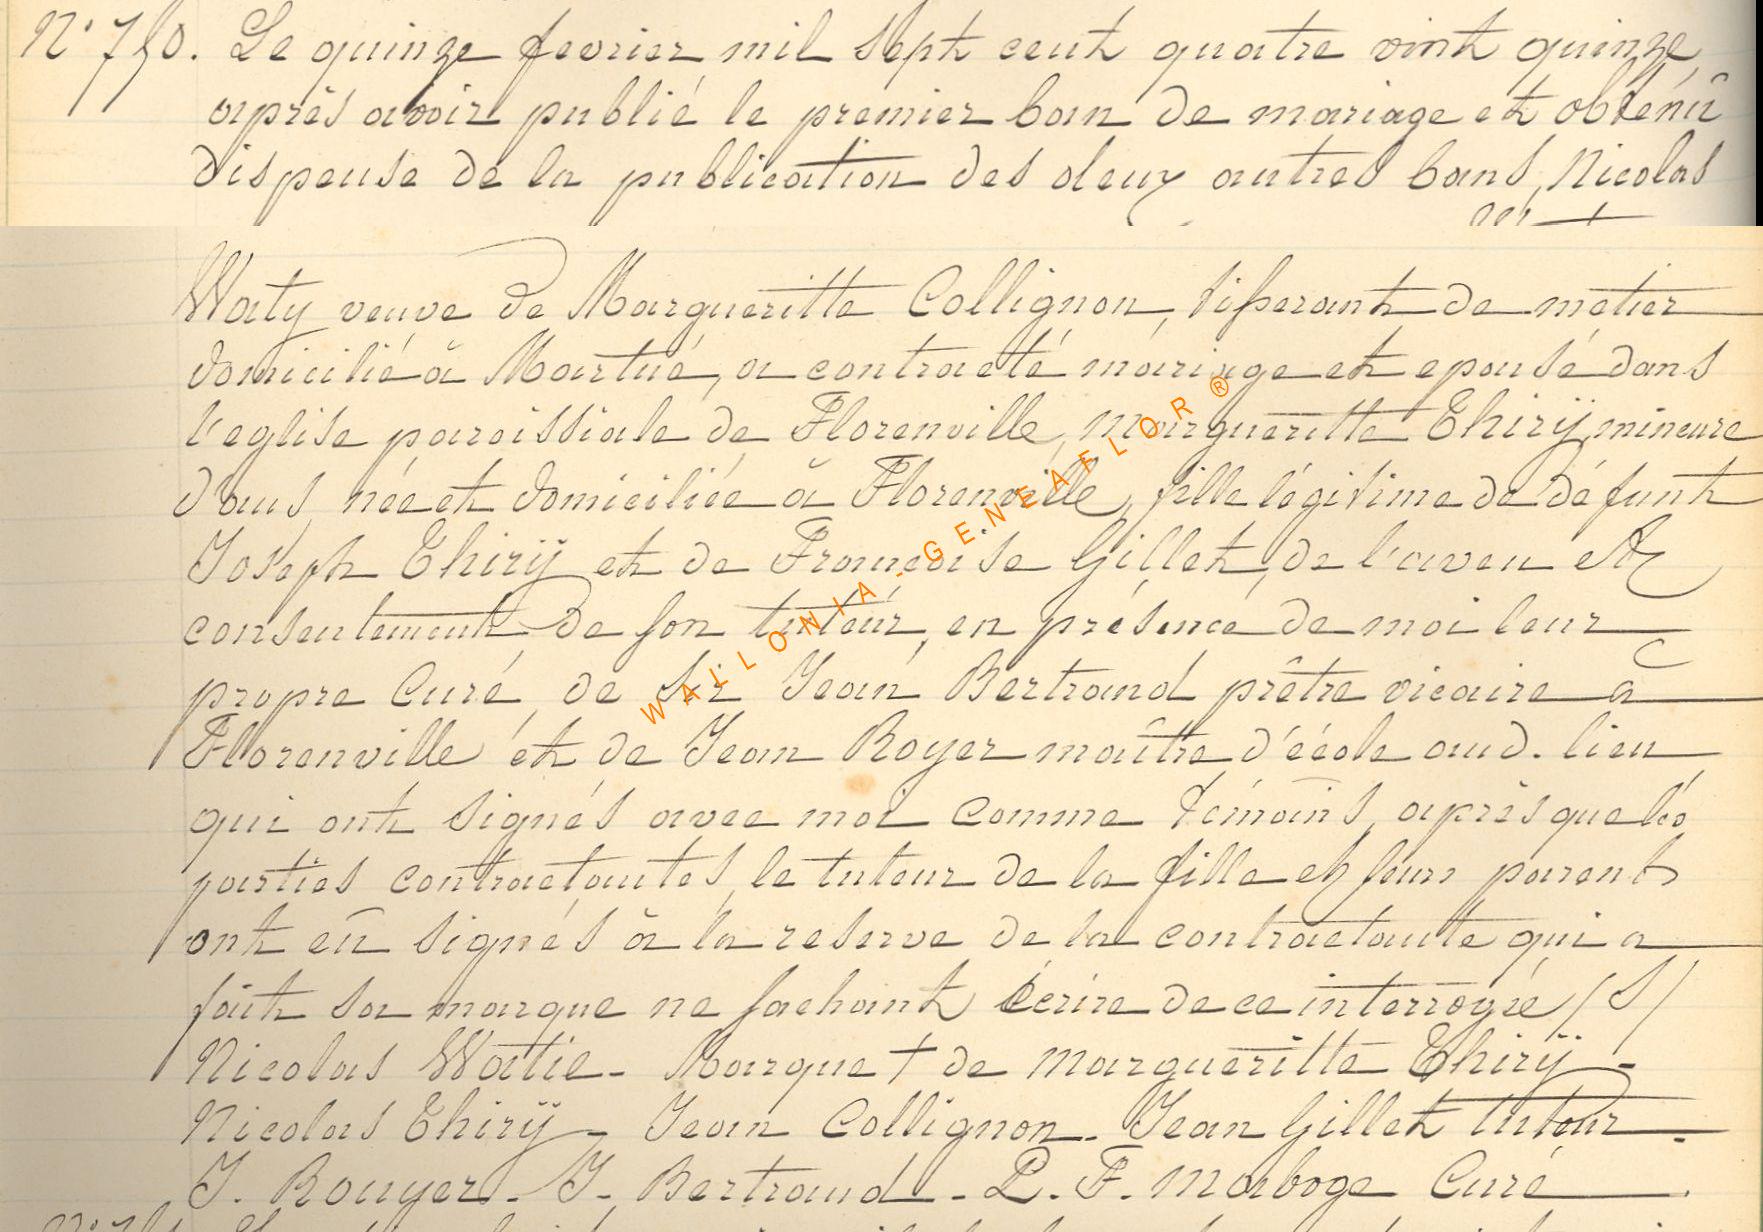 N° 750. Le quinze fevrier mil sept cent quatre vint quinze
après avoir publié le premier ban de mariage et obtenû
dispense de la publication des deux autres bans, Nicolas
Waty veuve de Margueritte Collignon, tisserant de metier
domicilié à Martué, a contracté mariage et epousé dans
l'eglise paroissiale de Florenville, Margueritte Thirÿ, mineure
d'ans, née et domiciliée à Florenville, fille légitime de défunt
Joseph Thirÿ et de Françoise Gillet, de l'aveu et
consentement de son tuteur, en présence de moi leur
propre Curé, de Sr Jean Bertrand prêtre vicaire à
Florenville et de Jean Royer maître d'école aud. lieu
qui ont signés avec moi comme témoins, après que les
parties contractantes, le tuteur de la fille et leurs parents
ont eû signés à la reserve de la contractante qui a
fait sa marque ne sachant écrire de ce interrogée /S/
Nicolas Watie - Marque + de Margueritte Thirÿ -
Nicolas Thirÿ - Jean Collignon - Jean Gillet tuteur -
J. Rouyer - J. Bertrand - P. F. Marboge Curé
WALLONIA - GENEAFLOR ®